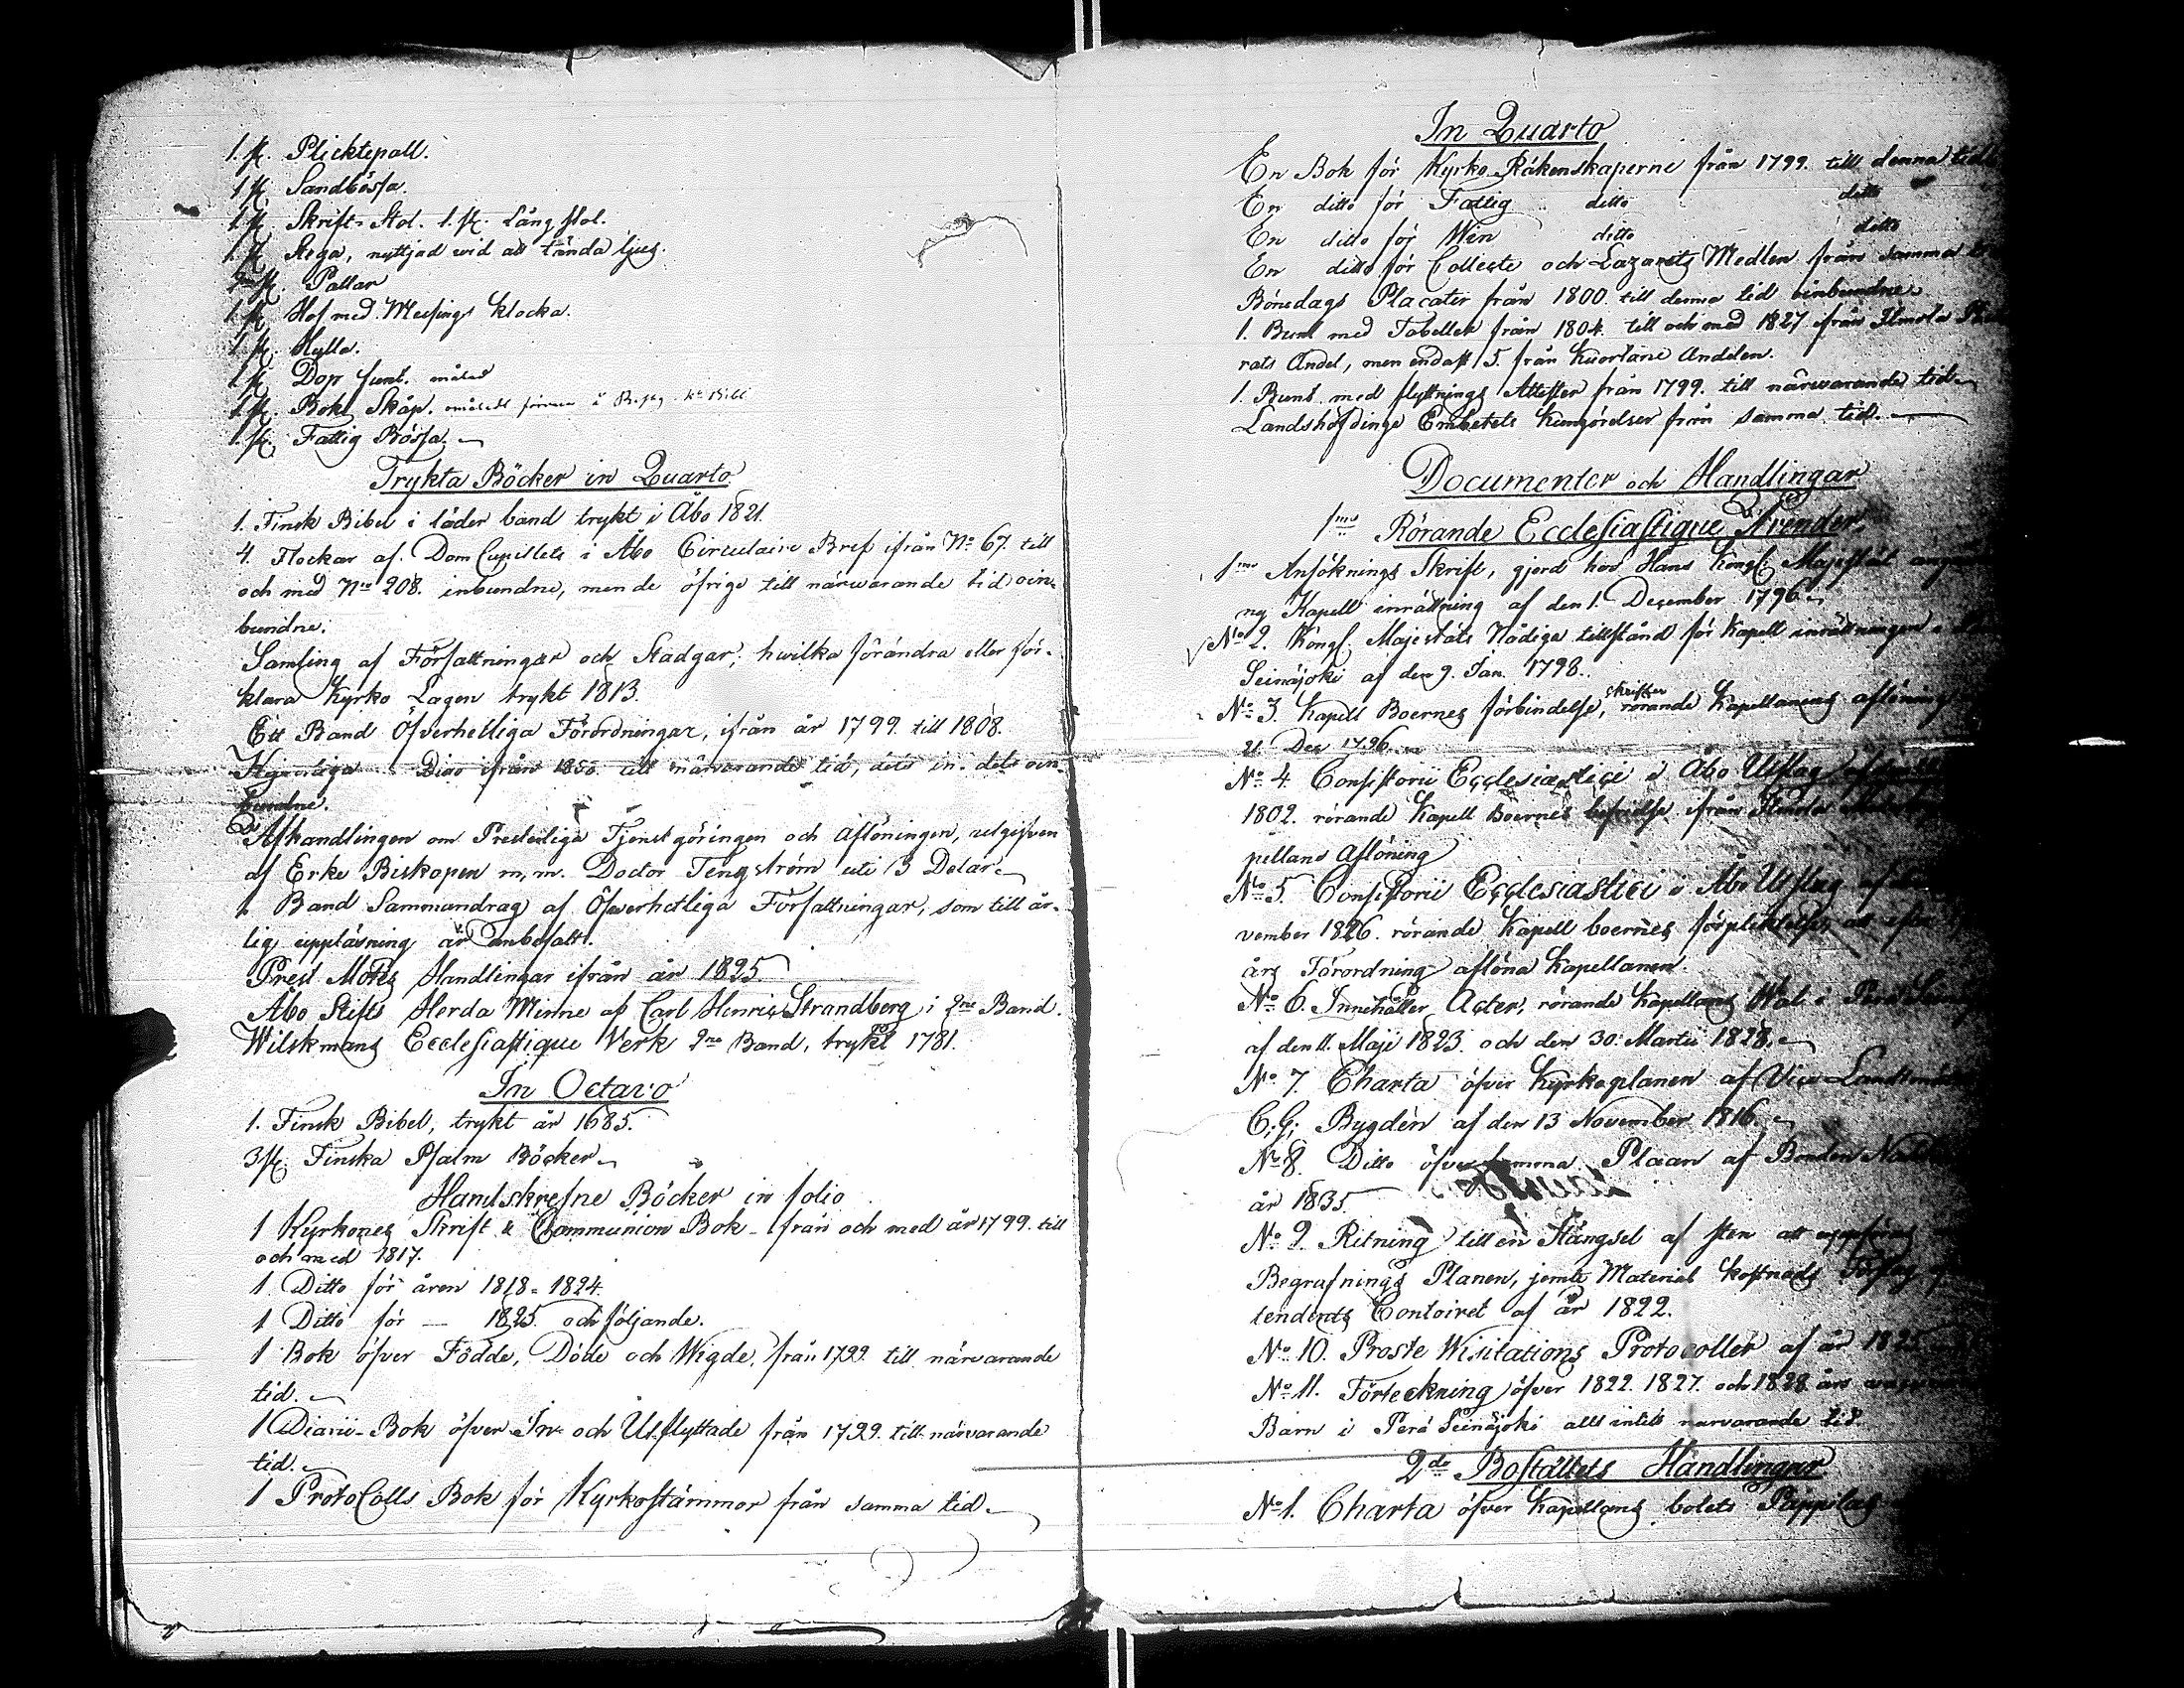 1. st. Plicktepall.
1 st. Sandbössa.
1. st. Skrift-Stol. 1. st. Lång stol.
1. st. Stega, nyttjad wid att tända ljus.
st. Pallar
1. st. Hof med Messings Klocka.
1. st. Hylla.
1. st. Dop funt. målad
1. st. Bok Skåp. omåladt
1. st. Fattig Bössa.
Trykta Böcker in Quarto
1. Finsk Bibel i läder band trykt i Åbo 1821.
4. Flockar af. Dom Capitlets i Åbo Circulaire Bref ifrån No 67. till
och med No 208. inbundne, men de öfrige till närwarande tid oin-
bundne.
Samling af Författningar och Stadgar, hwilka förändra eller för-
klara Kyrko Lagen trykt 1813.
Ett Band Öfverhetliga Förordningar, ifrån år 1799. till 1808.
Kejserliga Dito ifrån till närvarande tid, dels in- dels oin-
bundne.
Afhandlingen om Presterliga Tjenstgöringen och Aflöningen, utgifven
af Erke Biskopen m, m. Doctor Tengström uti 3 Delar.
1 Band Sammandrag af Öfwerhetliga Författningar, som till år-
lig uppläsning är anbefalt.
Prest Mötes Handlingar ifrån år 1825
Åbo Stifts Herda Minne af Carl Henric Strandberg i 2ne Band.
Wilskmans Ecclesiastique Verk 2ne Band, trykt 1781.
In Octavo
1. Finsk Bibel, trykt år 1685.
3 st. Finska Psalm Böcker
Handskrefne Böcker in folio
1 Kyrkones Skrift & Communion Bok ifrån och med år 1799. till
och med 1817.
1. Ditto för åren 1818-1824.
1 Ditto för — 1825 och följande.
1 Bok öfver Födde, Döde och Wigde, från 1799. till närvarande
tid.
1 Diarii-Bok öfver In- och Utflyttade från 1799. till närvarande
tid.
1 ProtoColls Bok för Kyrkostämmor från samma tid.
In Quarto
En Bok för Kyrko Räkenskaperne från 1799. till denna tid
En ditto för Fattig ditto ditto
En ditto för Win ditto ditto
En ditto för Collecte och Lazaretts Medlen från samma
Bönedags Placater från 1800. till denna tid oinbundne
1. Bunt med Tabeller från 1804. till och med 1827 ifrån Ilmola
rats Andel, men endast 5. från Kuortane Andelen.
1. Bunt med flyttnings Attester från 1799. till närwarande tid.
Landshöfdinge Embetets Kungörelser från samma tid.
Documenter och Handlingar
1mo Rörande Ecclesiastique Ärender.
1mo Ansöknings Skrift, gjord hos Hans Kongl. Majestät
ny Kapell inrättning af den 1. December 1796.
No 2. Kongl. Majestäts Nådiga tillstånd för Kapell inrättningen i
Seinäjoki af den 9. Jan. 1798.
No 3. Kapell Boernes förbindelse, skrifter rörande Kapellanens aflöning
21 Dec 1796.
No 4 Consistorii Ecclesiastici i Åbo Utslag af
1802. rörande Kapell Boernes befrielse ifrån Ilmola
pellans Aflöning
No 5. Consistorii Ecclesiastici i Åbo Utslag af
vember 1826. rörande Kapell boernes förpligtelse, att efter
års Förordning aflöna Kapellanen.
No 6. Innehåller Acter, rörande Kapellans Wal i Perä
af den 11. Maji 1823. och den 30. Martii 1828.
No 7. Charta öfver Kyrkoplanen af Vice
C. G. Bygdén af den 13 November 1816.
No 8. Ditto öfver samma Plaan af Bonden
år 1835.
No 9. Ritning till en Stängsel af sten att uppföras
Begrafnings Planen, jemte Material Kostnads Förslag
tendents Contoiret af år 1822.
No 10. Proste Wisitations Protocoller af år 1825
No 11. Förteckning öfver 1822. 1827. och 1828 års
Barn i Perä Seinäjoki allt intill närwarande tid.
2do Boställets Handlingar
No 1. Charta öfver Kapellans bolets Pappilas